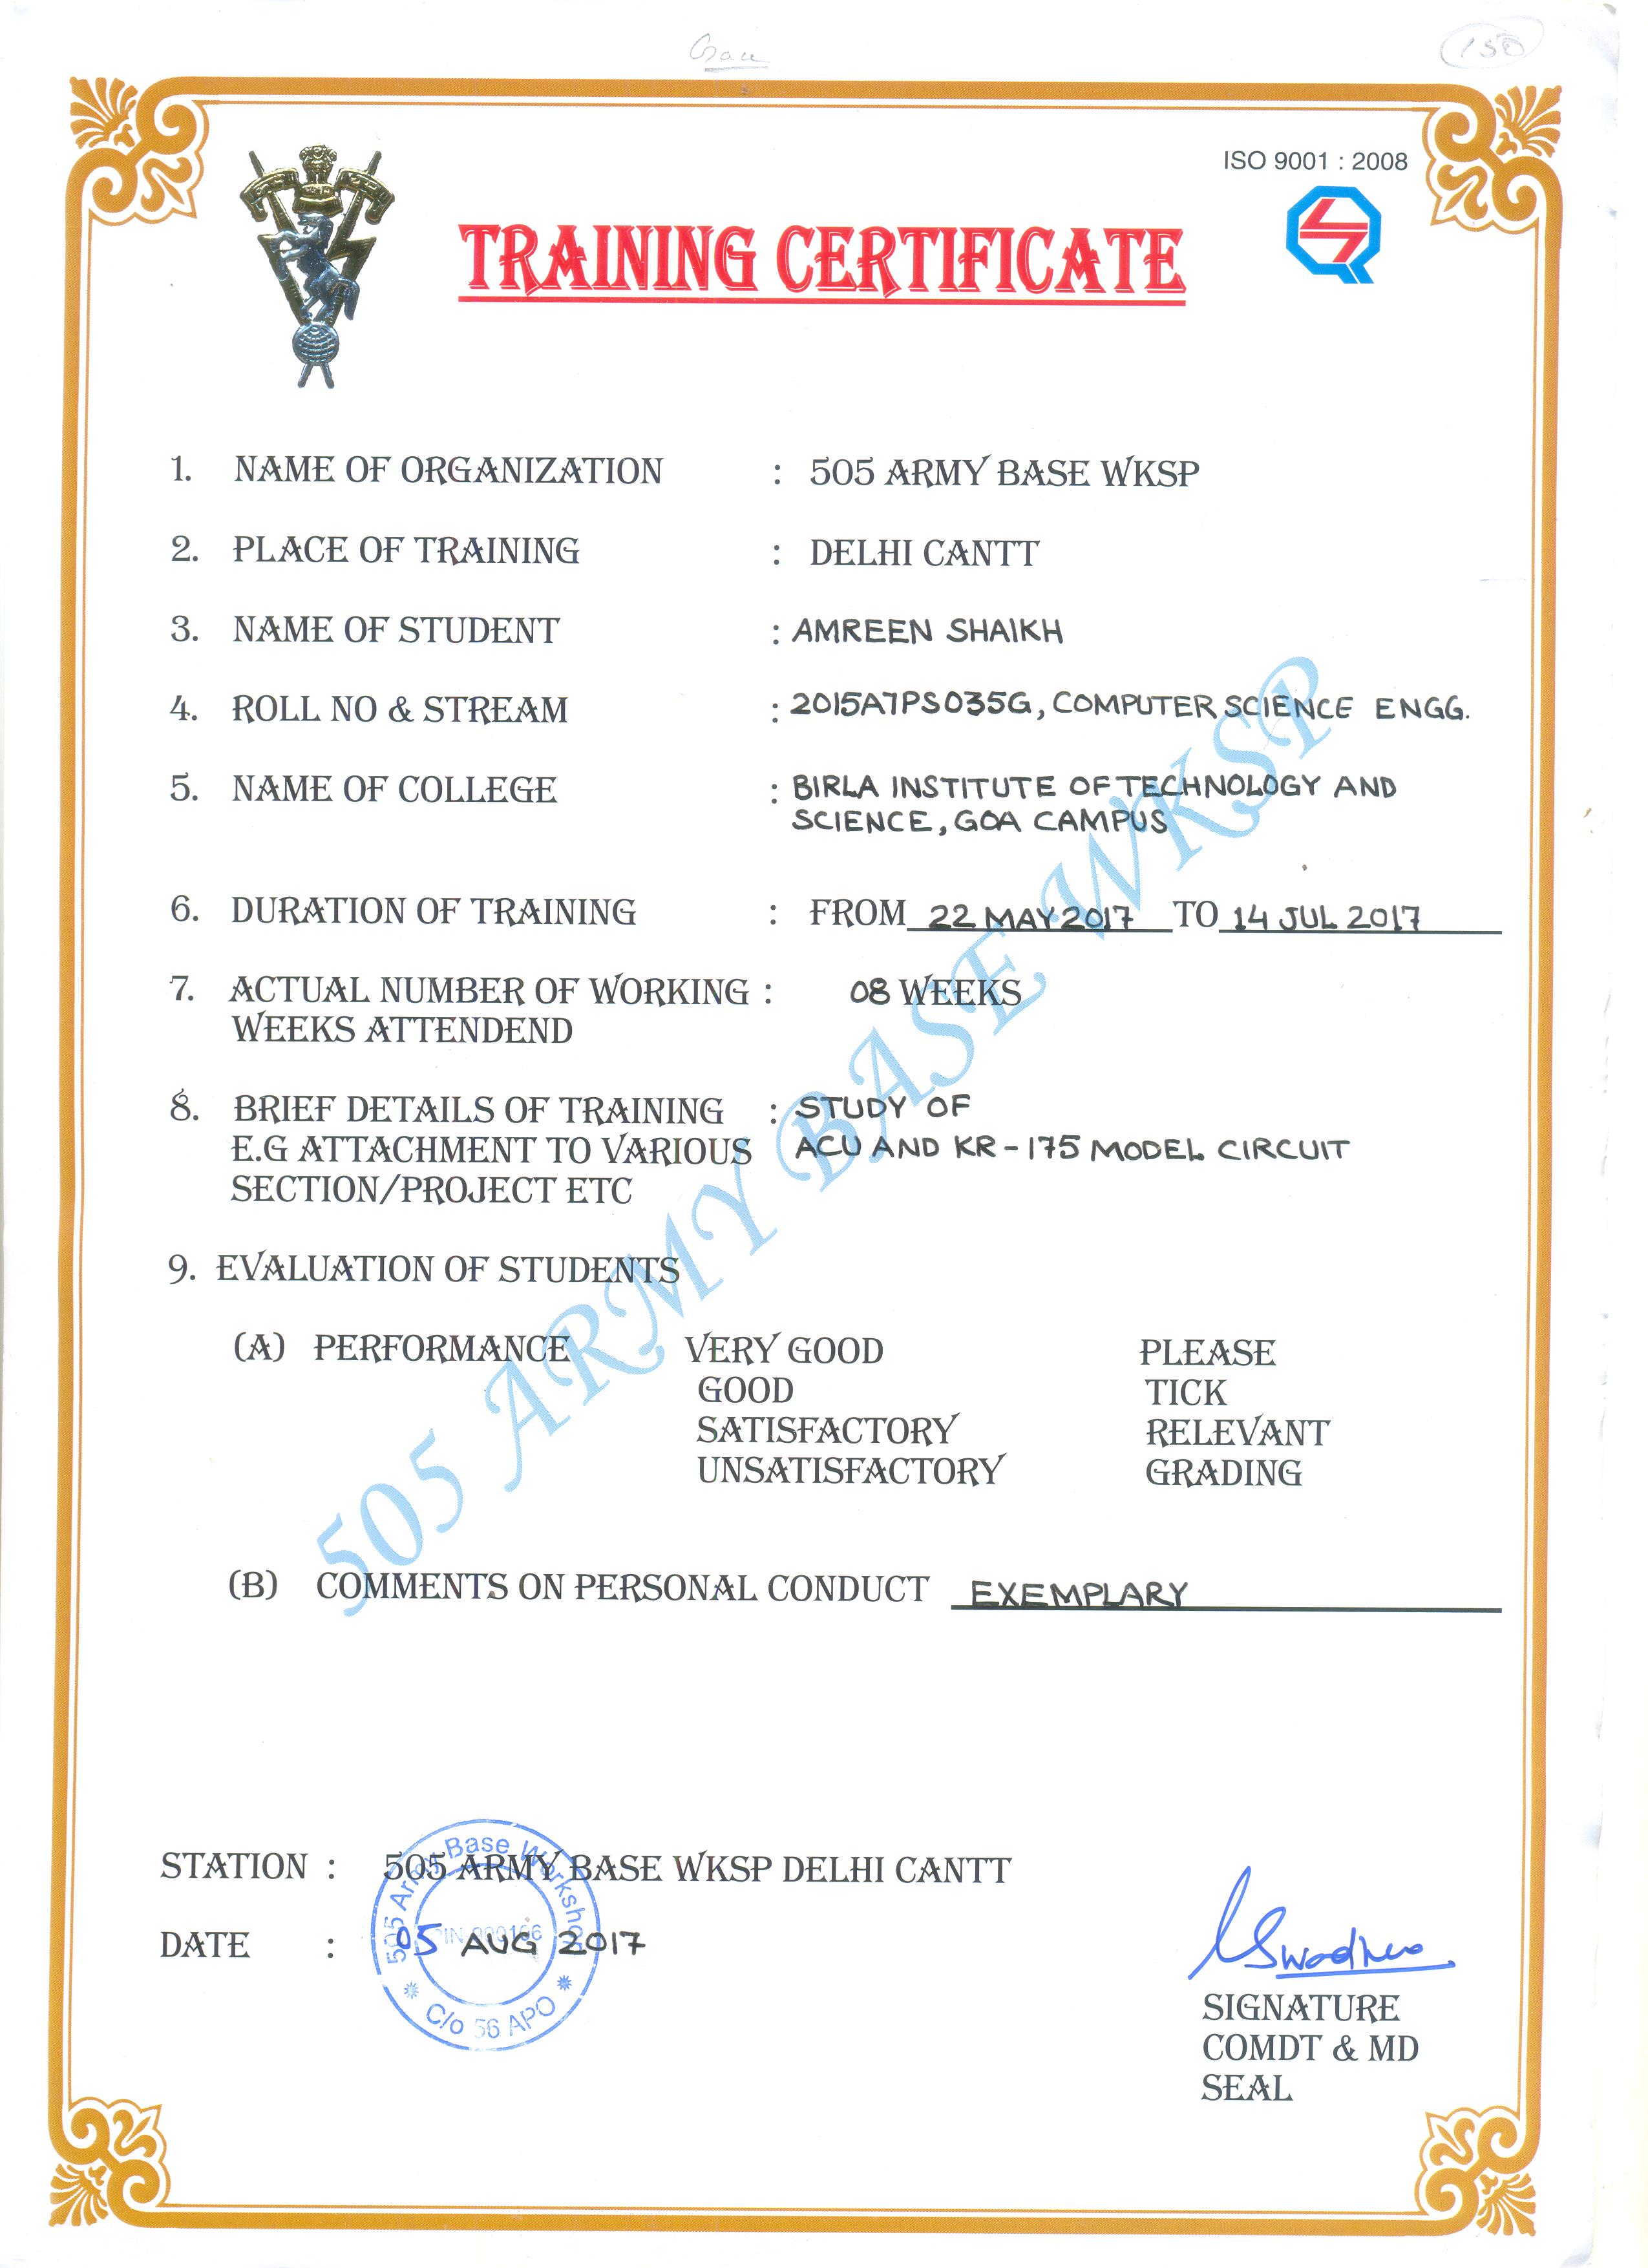 150
ISO 9001 : 2008
TRAINING CERTIFICATE
1. NAME OF ORGANIZATION : 505 ARMY BASE WKSP
2. PLACE OF TRAINING : DELHI CANTT
3. NAME OF STUDENT : AMREEN SHAIKH
4. ROLL NO & STREAM : 2015A7PS035G, COMPUTER SCIENCE ENGG.
5. NAME OF COLLEGE : BIRLA INSTITUTE OF TECHNOLOGY AND
SCIENCE, GOA CAMPUS
6. DURATION OF TRAINING : FROM 22 MAY 2017 TO 14 JUL 2017
7. ACTUAL NUMBER OF WORKING : 08 WEEKS
WEEKS ATTENDEND
8. BRIEF DETAILS OF TRAINING : STUDY OF
E.G ATTACHMENT TO VARIOUS ACU AND KR-175 MODEL CIRCUIT
SECTION/PROJECT ETC
9. EVALUATION OF STUDENTS
(A) PERFORMANCE VERY GOOD PLEASE
GOOD TICK
SATISFACTORY RELEVANT
UNSATISFACTORY GRADING
(B) COMMENTS ON PERSONAL CONDUCT EXEMPLARY
505 ARMY BASE WKSP
STATION : 505 ARMY BASE WKSP DELHI CANTT
DATE : 05 AUG 2017
505 Army Base Workshop
C/o 56 APO
SIGNATURE
COMDT & MD
SEAL